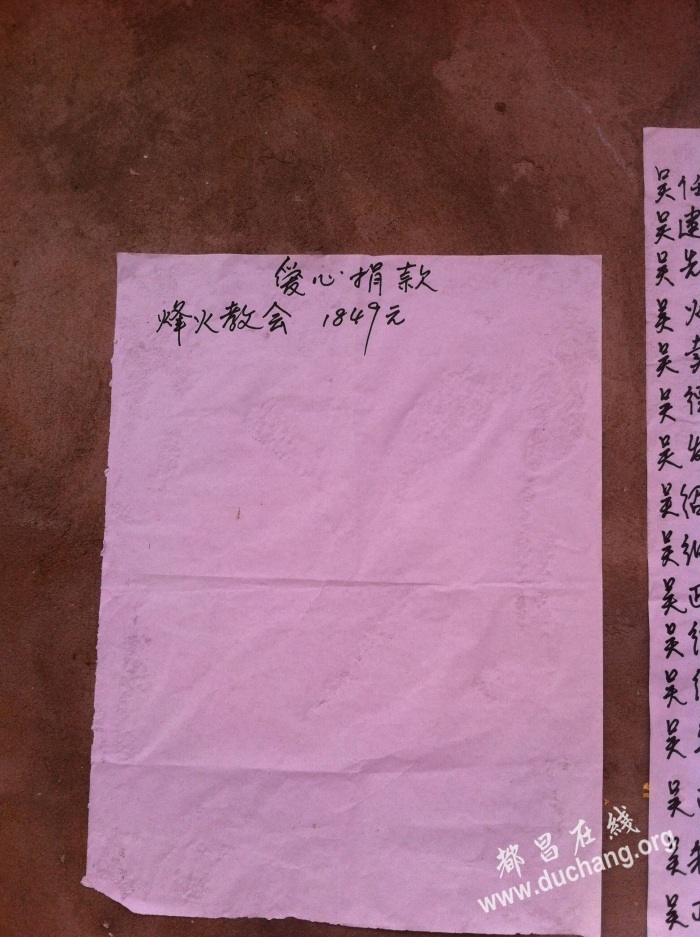 爱心捐款
烽火教会 1849元
吴任
吴建
吴先
吴火
吴
吴德
吴发
吴绍
吴
吴正
吴
吴
吴
吴
吴
吴正
都昌在线
www.duchang.org